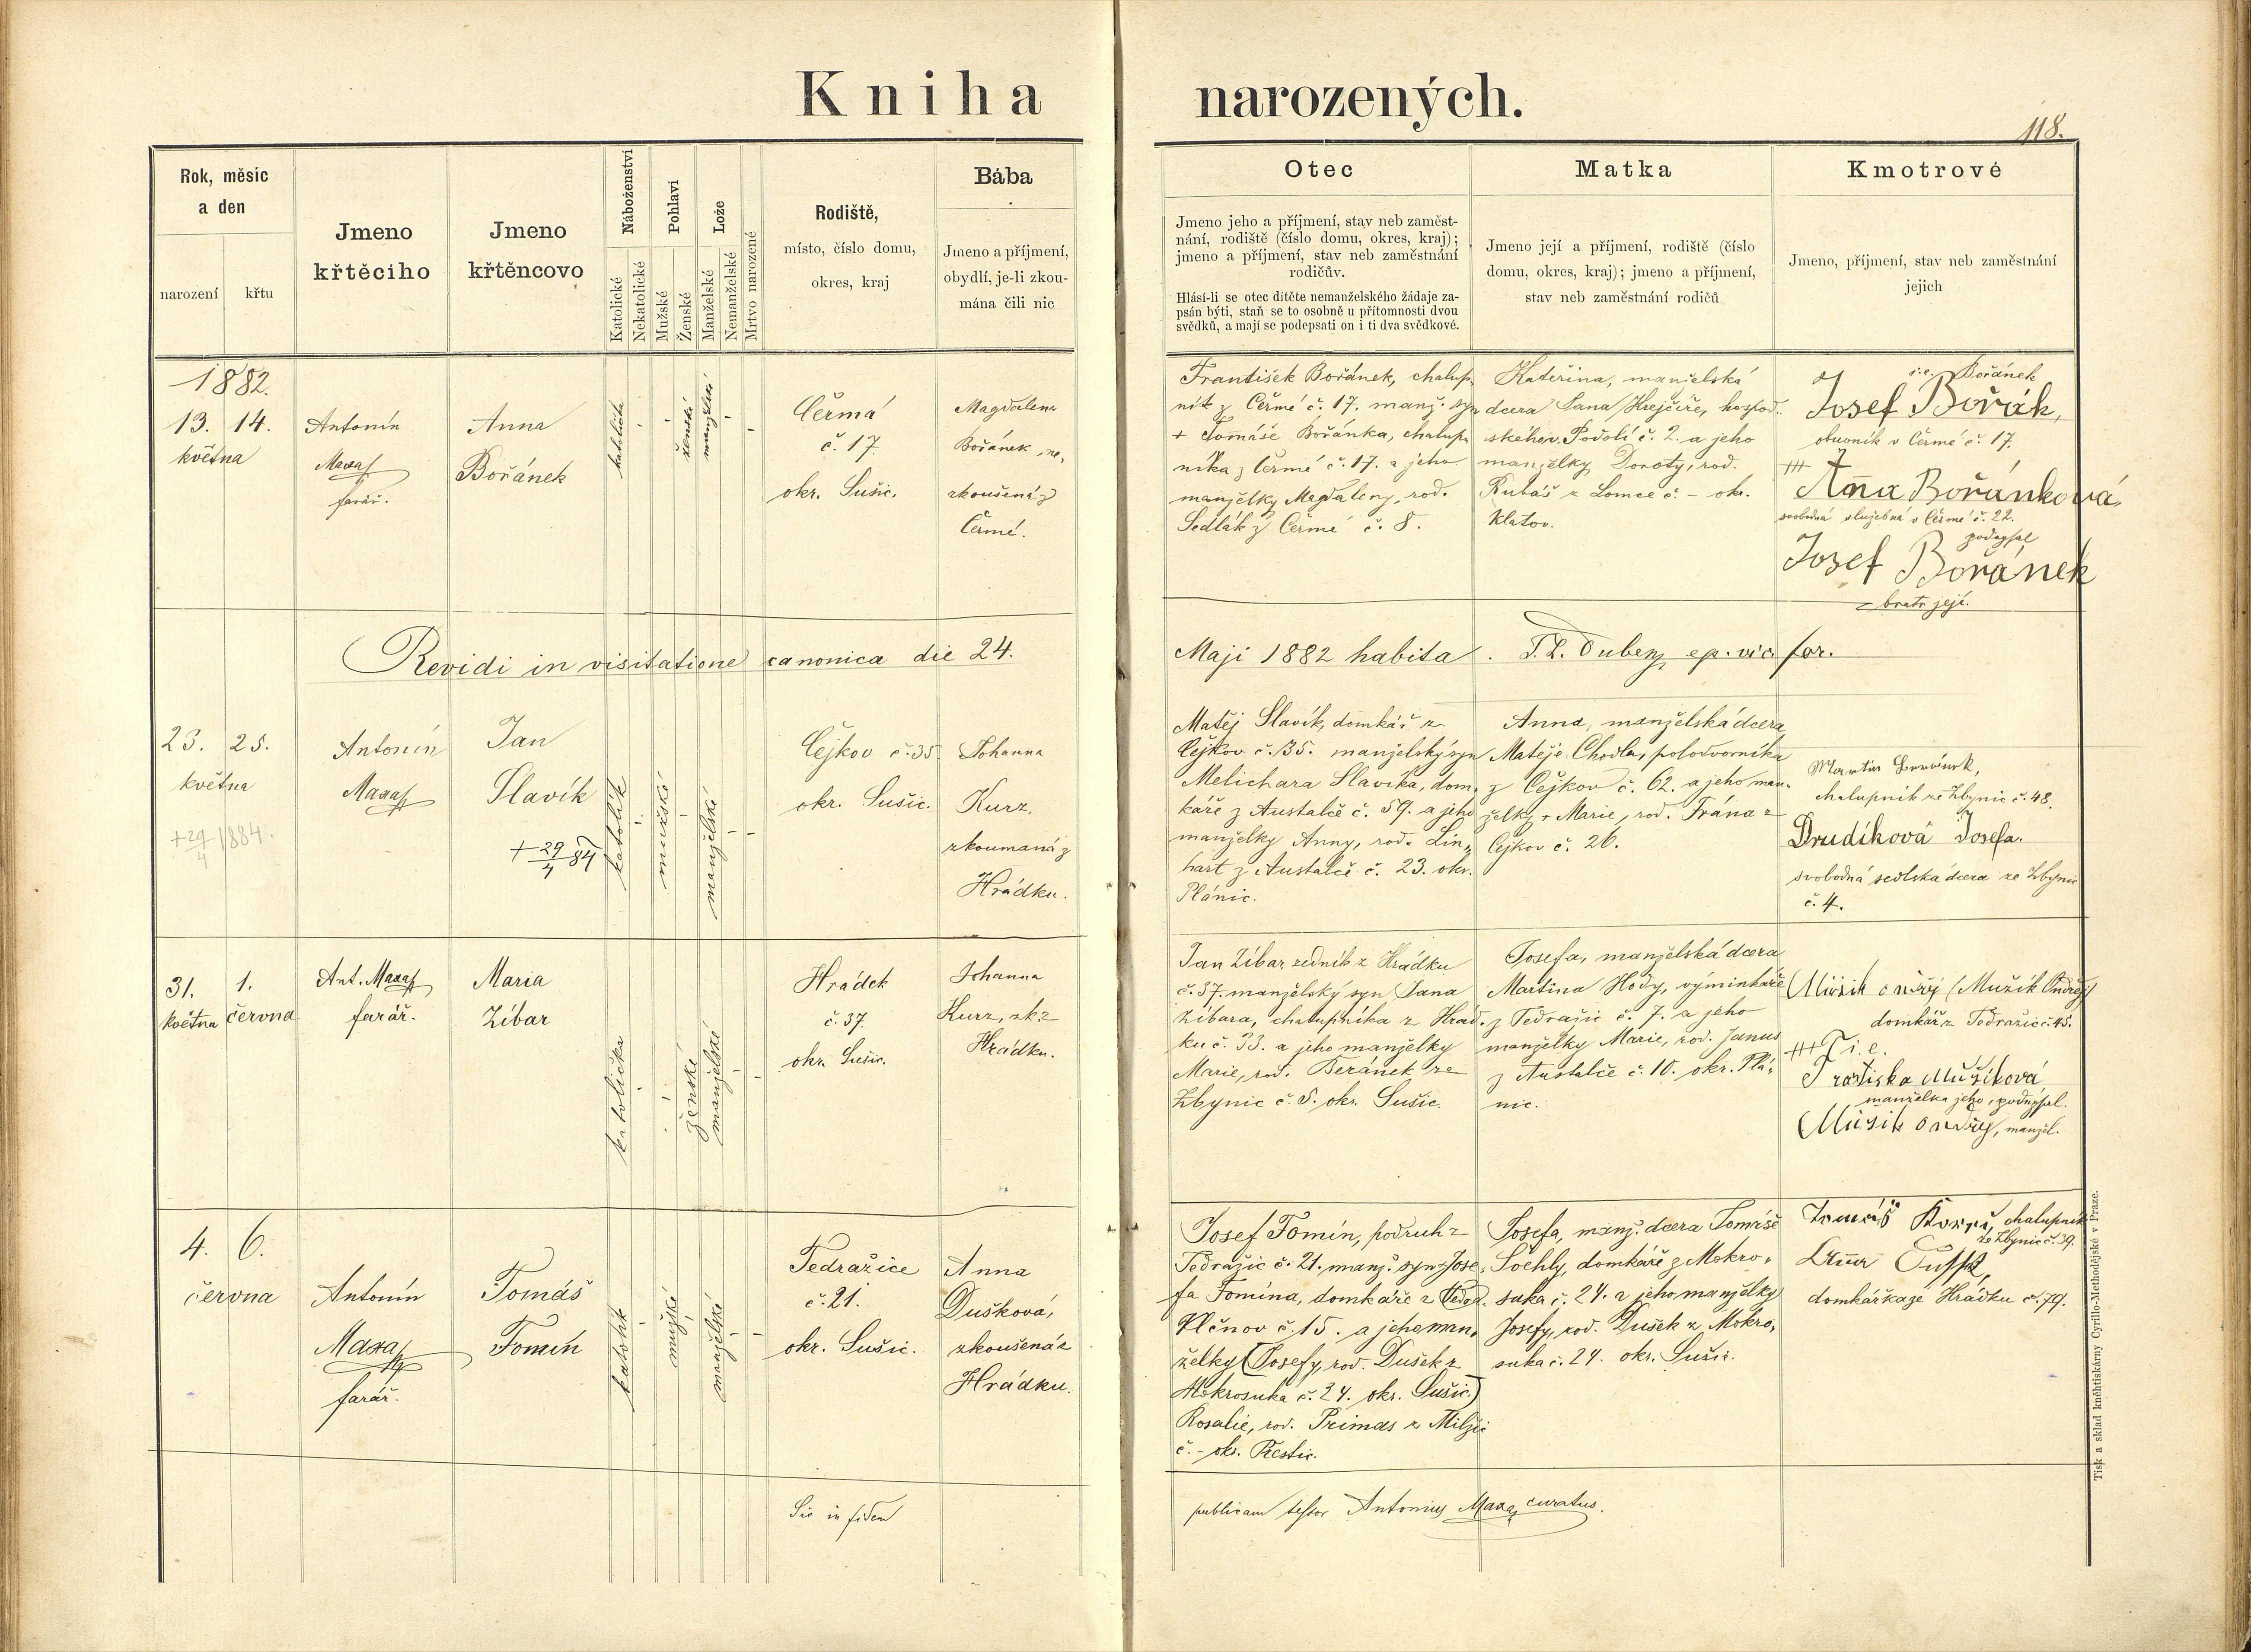 Kniha narozených.
118.
Rok, měsíc
a den
narození
křtu
Jmeno
křtěcího
Jmeno
křtěncovo
Náboženství
Katolické
Nekatolické
Pohlaví
Mužské
Ženské
Lože
Manželské
Nemanželské
Mrtvo narozené
Rodiště,
místo, číslo domu,
okres, kraj
Bába
Jmeno a příjmení,
obydlí, je-li zkou-
mána čili nic
Otec
Jmeno jeho a příjmení, stav neb zaměst-
nání, rodiště (číslo domu, okres, kraj);
jmeno a příjmení, stav neb zaměstnání
rodičův.
Hlásí-li se otec dítěte nemanželského žádaje za-
psán býti, staň se to osobně u přítomnosti dvou
svědků, a mají se podepsati on i ti dva svědkové.
Matka
Jmeno její a příjmení, rodiště (číslo
domu, okres, kraj); jmeno a příjmení,
stav neb zaměstnání rodičů
Kmotrové
Jmeno, příjmení, stav neb zaměstnání
jejich
1882.
13. 14.
května
Antonín
Maxa
farář.
Anna
Bořánek
katolička
ženské
manželské
Čermá
č. 17.
okr. Sušic.
Magdalena
Bořánek
zkoušená z
Čermé.
František Bořánek, chalup-
ník z Čermé č. 17. manž. syn
+ Tomáše Bořánka, chalup-
níka z Čermé č. 17. a jeho
manželky Magdaleny, rod.
Sedlák z Čermé č. 8.
Kateřina, manželská
dcera Jana Krejčíře, hospod.
ského v Podolí č. 2. a jeho
manželky Doroty, rod.
Kubáš z Lomce č. - okr.
Klatov.
i.e. Bořánek
Josef Bořák,
obuvník v Čermé č. 17.
+++
Anna Bořánková,
svobodná služebná v Čermé č. 22.
podepsal
Josef Bořánek
bratr její.
Revidi in visitatione canonica die 24. Maji 1882 habita. Dubenz ep. vic. for.
23. 25.
května
+29/4 1884.
Antonín
Maxa
Jan
Slavík
+ 29/4 84
katolík
mužské
manželské
Čejkov č. 35.
okr. Sušic.
Johanna
Kurz,
zkoumaná z
Hrádku.
Matěj Slavík, domkář z
Čejkov č. 35. manželský syn
Melichara Slavíka, dom-
káře z Austalče č. 59. a jeho
manželky Anny, rod. Lin-
hart z Austalče č. 23. okr.
Plánic.
Anna, manželská dcera
Matěje Chodla, polodvorníka
z Čejkov č. 62. a jeho man-
želky + Marie, rod. Frána z
Čejkov č. 26.
Martin
chalupník ze Zbynic č. 48.
Drudíková Josefa.
svobodná sedlská dcera ze Zbynic
č. 4.
31. 1.
května června
Ant. Maxa
farář.
Maria
Zíbar
katolička
ženské
manželské
Hrádek
č. 37.
okr. Sušic.
Johanna
Kurz, zk. z
Hrádku.
Jan Zíbar, zedník z Hrádku
č. 37. manželský syn Jana
Zíbara, chalupníka z Hrád-
ku č. 33. a jeho manželky
Marie, rod. Beránek ze
Zbynic č. 5. okr. Sušic.
Josefa, manželská dcera
Martina Hody, výminkáře
z Tedražic č. 7. a jeho
manželky Marie, rod. Janus
z Austalče č. 10. okr. Plá-
nic.
Mužik Ondřej (Mužík Ondřej)
domkář z Tedražic č. 45.
+++ i.e.
Frantiska Mužíková
manželka jeho, podepsal.
Mužik Ondřej, manžel.
4. 6.
června
Antonín
Maxa
farář.
Tomáš
Tomín
katolík
mužské
manželské
Tedražice
č. 21.
okr. Sušic.
Anna
Dušková,
zkoušená z
Hrádku.
Josef Tomín, podruh z
Tedražic č. 21. manž. syn Jose-
fa Tomína, domkáře z
Vlčnov č. 15. a jeho man-
želky (Josefy, rod. Dušek z
Mokrosuka č. 24. okr. Sušic.)
Rosalie, rod. Primas z Milčic
č. - okr. Přestic.
Josefa, manž. dcera Tomáše
Sochly, domkáře z Mokro-
suka č. 24. a jeho manželky
Josefy, rod. Dušek z Mokro-
suka č. 24. okr. Sušic.
Tomáš chalupník
ze Zbynic č. 39.
Anna
domkářka ze Hrádku č. 79.
Sic in fidem publicam testor Antonius Maxa, curatus.
Tisk a sklad knihtiskárny Cyrillo-Methodějské v Praze.